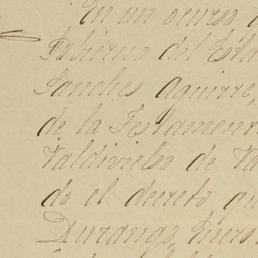 En un ocurso
Gobierno del Esta
Sanches Aguirre,
de la Testament
Valdivielso de Va
do el decreto qu
Durango,